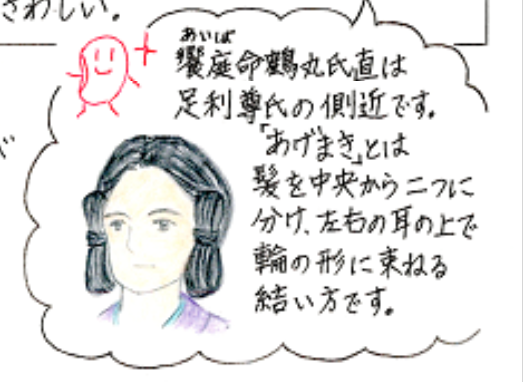 さわしい。
あいば
饗庭命鶴丸氏直は
足利尊氏の側近です。
「あげまき」とは
髪を中央から二つに
分け、左右の耳の上で
輪の形に束ねる
結い方です。